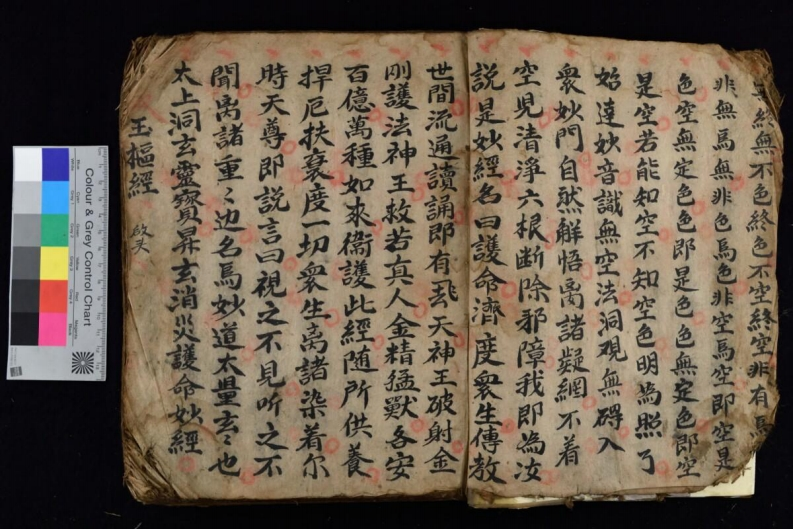 終無不色終色不空終空非有爲
非無爲無非色爲色非空爲空即空是
色空無定色色即是色色無定色即空
是空若能知空不知空色明為照了
始達妙音識無空法洞观無碍入
衆妙門自然解悟离諸疑網不着
空見清淨六根断除邪障我即為汝
説是妙經名曰護命濟度衆生傳教
世間流通讀誦即有飛天神王破射金
刚護法神王救若真人金精猛獸各安
百億萬種如来衛護此經随所供養
捍厄扶衰度一切衆生离諸染着尔
時天尊即説言曰視之不見听之不
聞离諸重〻边名爲妙道太量玄〻也
太上洞玄靈寳昇玄消災護命妙經
玉樞經 啟头
Colour & Grey Control Chart